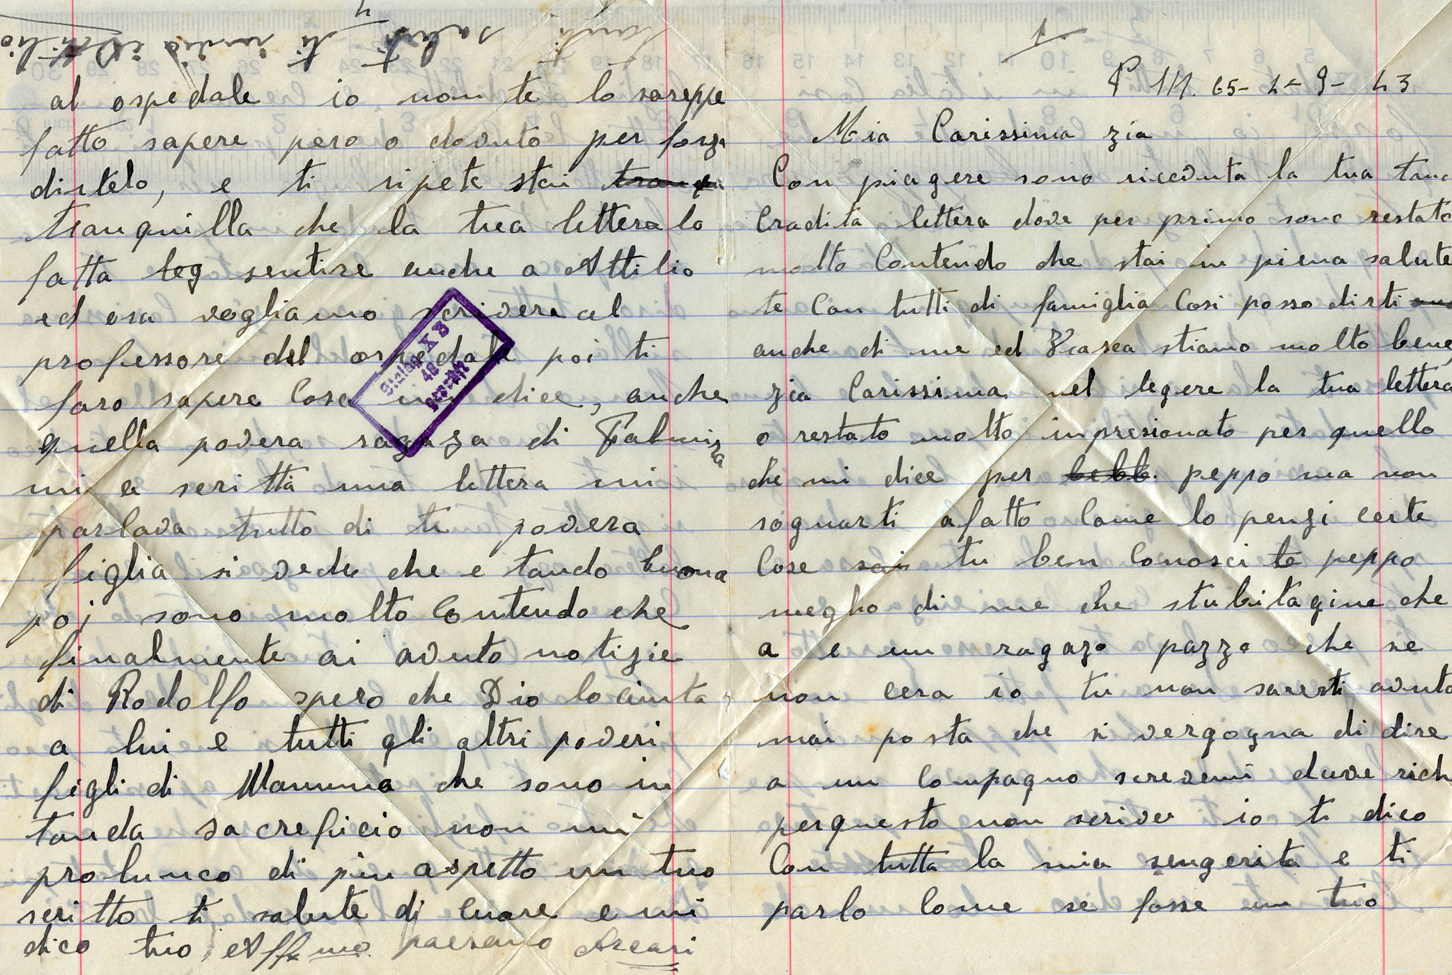 1
P. M. 65 - 2 - 9 - 43
Mia Carissima zia
Con piagere sono riceduta la tua tanc
Cradita lettera dove per primo sono restato
molto Contendo che stai in piena salute
te Con tutti di famiglia Cosi posso dirti
anche di me ed stiamo molto bene
zia Carissima nel legere la tua lettera
o restato molto inpresionato per quello
che mi dice per peppo ma non
sognarti afatto Come lo penzi certe
Cose sai tu ben Conosci te peppo
megho di me che stubitagine che
a e un ragazo pazzo che se
non cera io tu non saresti avuta
mai posta che si vergogna di dire
a un Compagno screvemi duve rich
perquesto non scrive io ti dico
Con tutta la mia sengerita e ti
parlo Come se fosse un tuo
4
al ospedale io non te lo sareppe
fatto sapere pero o dovuto per forza
dirtelo, e ti ripete stai
tranquilla che la tua lettera lo
fatta leg sentire anche a Attilio
ed ora vogliamo scrivere al
professore del ospedale poi ti
faro sapere Cosa mi dice, anche
quella povera ragaza di
mi a scritta una lettera mi
parlava tutto di te povera
figlia si vede che e tando buona
poj sono molto Contendo che
finalmente ai avuto notizie
di Rodolfo spero che Dio lo aiuta
a lui e tutti gli altri poveri
figli di Mamma che sono in
tanda sacreficio non mi
prolunco di piu aspetto un tuo
scritto ti salute di Cuore e mi
dico tuo Affmo paesano Arcari
tanti saluti ti invio Attilio
Stalag X B
48
Geprüft